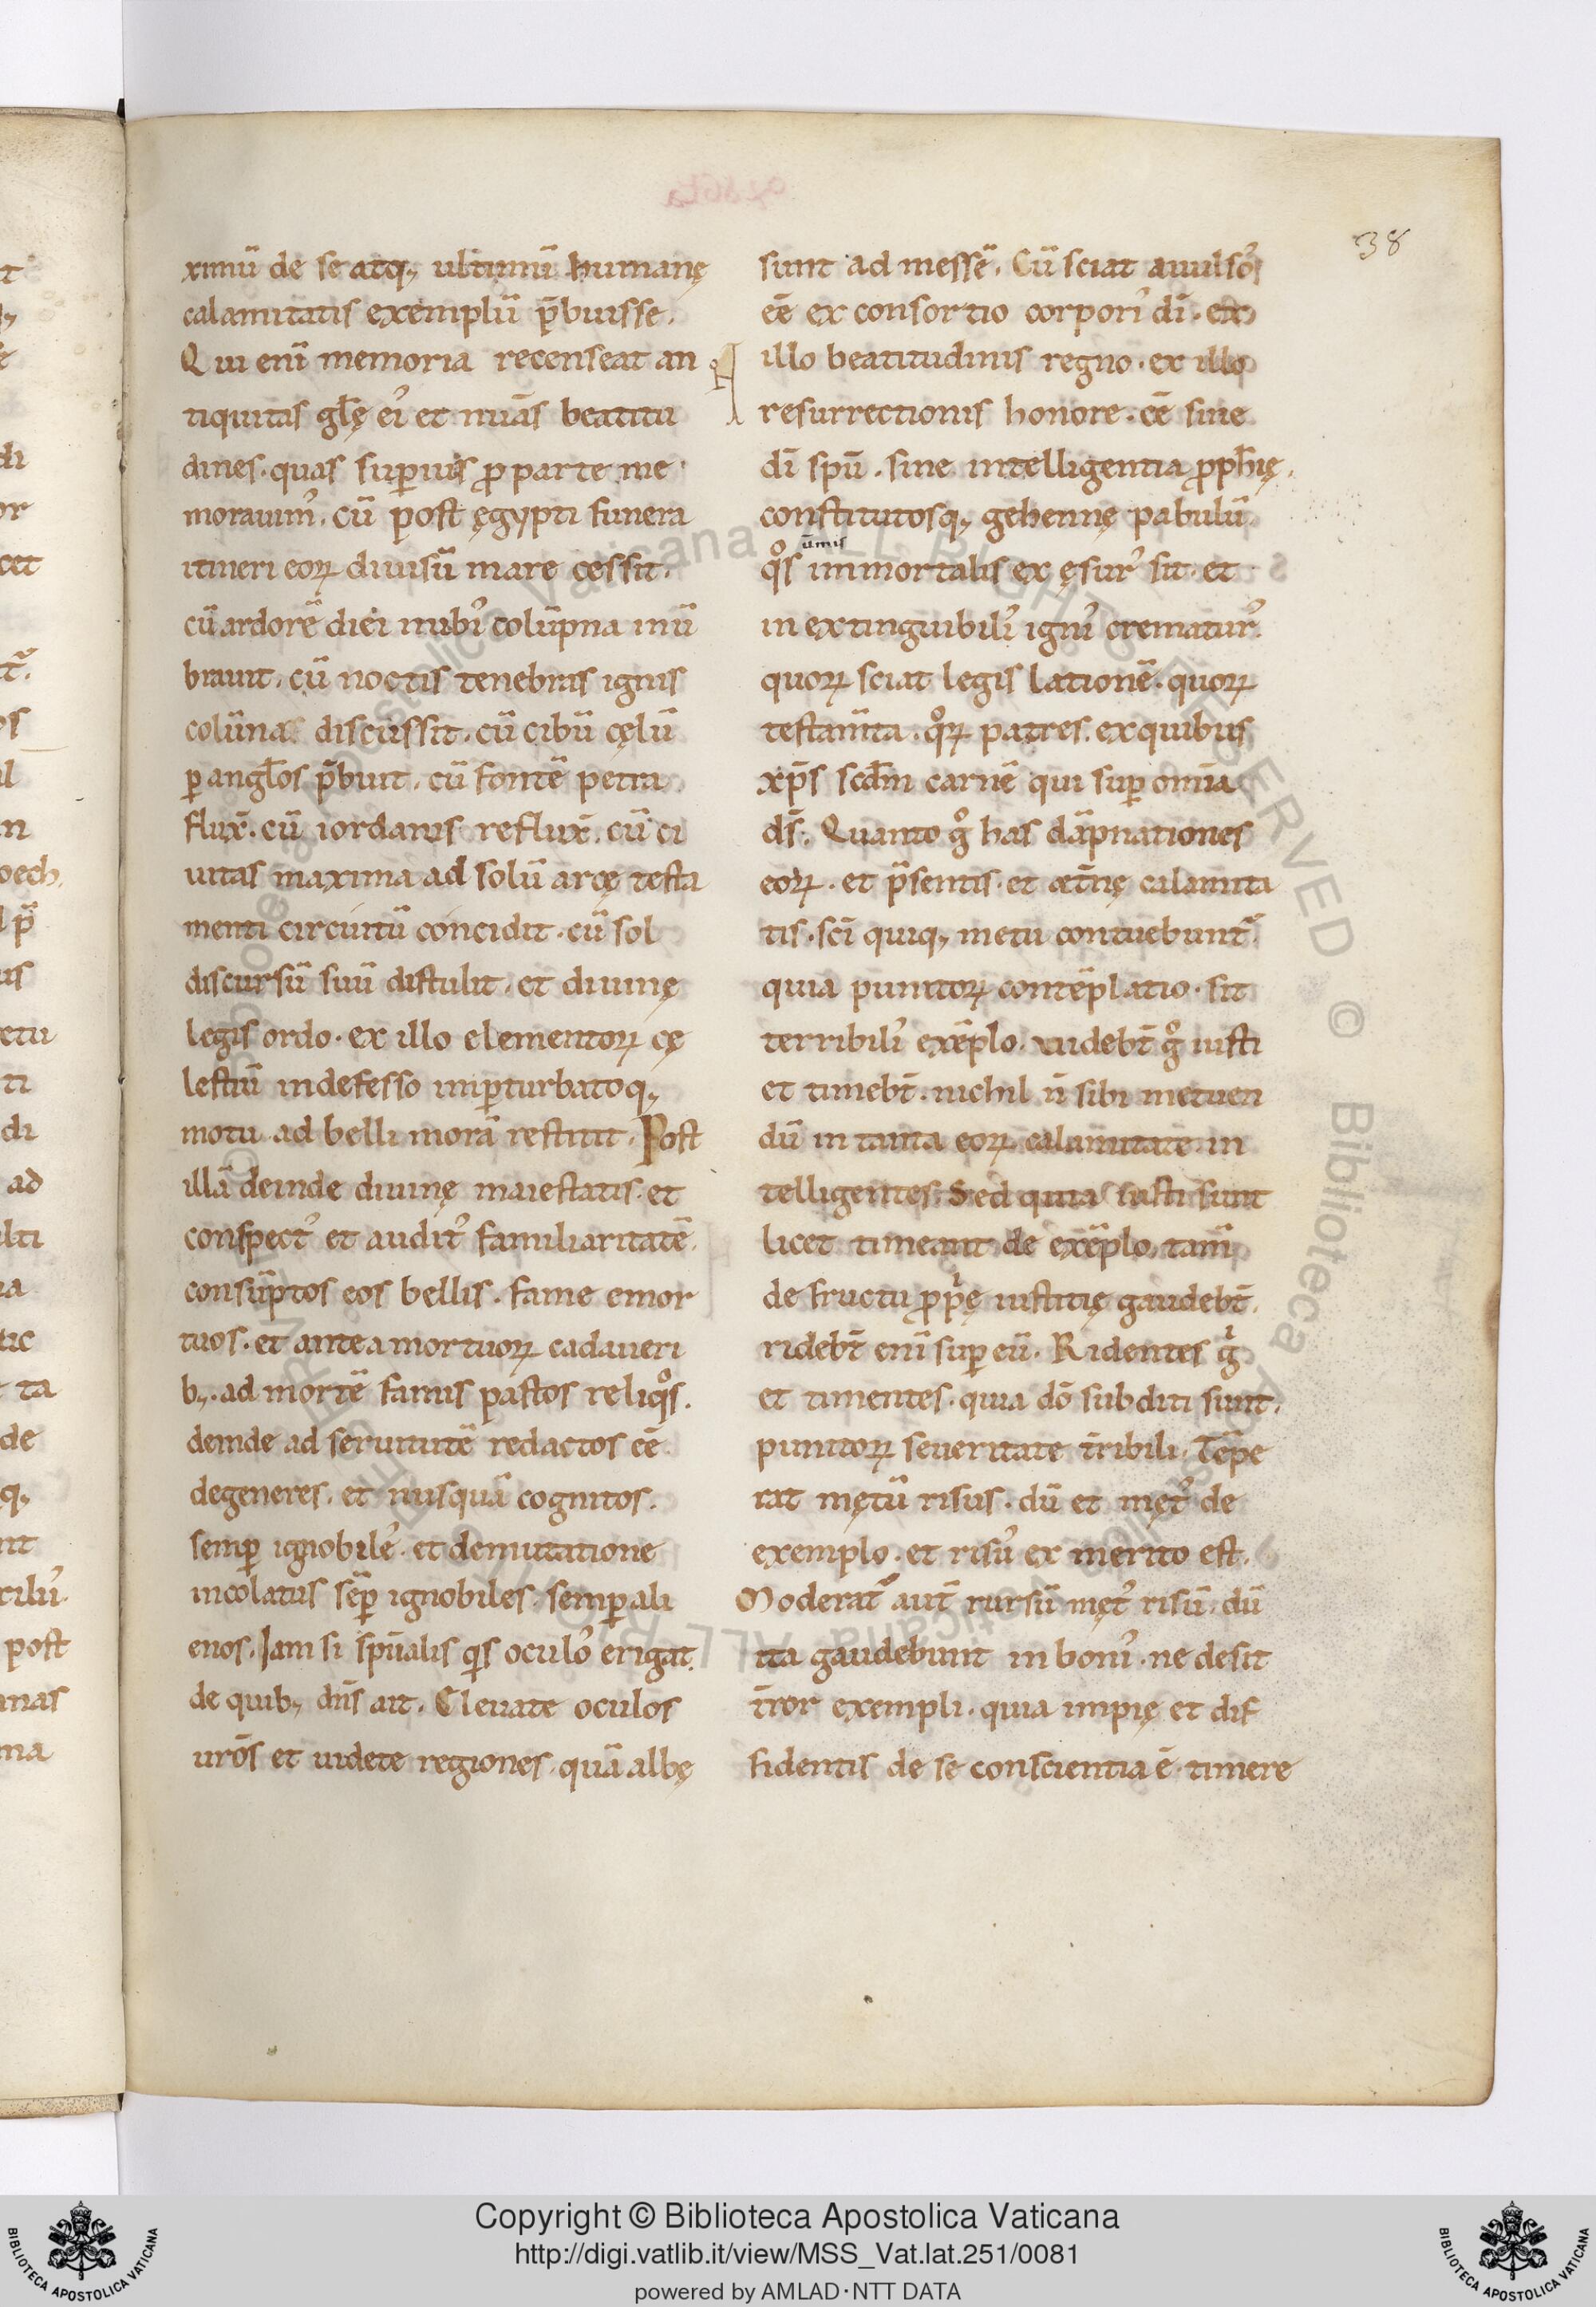 38
ximū de se atq; ultimū humanę
calamitatis exemplū p̄buisse.
Qui enī memoria recenseat an
tiquitas gl̄ę ei᾽ et nuās beatitu
dines. quas sup̱ius ꝓ parte me
morauim᾽. cū post ęgypti funera
itineri eoꝝ diuisū mare cessit.
cū ardorē diei nubi᾽ colūpna inū
brauit. cū noctis tenebras ignis
colūna discussit. cū cibū cęlū
ꝑ angl̄os p̄buit. cū fontē petra
flux̄. cū iordanis reflux̄. cū ci
uitas maxima ad solū arcę testa
menti circuitū concidit. cū sol
discursū suū distulit. et diuinę
legis ordo. ex illo elementoꝝ cę
lestiū indefesso inꝑturbatoq;
motu ad belli morā restitit. Post
illā deinde diuinę maiestatis. et
conspect᾽ et audit᾽ familiaritatē
consūptos eos bellis. fame emor
tuos. et antea mortuoꝝ cadaueri
b;. ad mortē famis pastos reliqͦs.
deinde ad seruitutē redactos eē
degeneres. et nusquā cognitos.
semꝑ ignobile᾽. et demutatione
incolatus sēꝑ ignobiles. semꝑ ali
enos. Iam si spūalis qis oculo᾽ erigat.
de quib; dn̄s ait. Eleuate oculos
urōs et uidete regiones. quā albę
sunt ad messē. Cū sciat auulsos
eē ex consortio corpori᾽ dī. ex
illo beatitudinis regno. ex illo
resurrectionis honore. eē sine
dī spū. sine intelligentia ꝓph̄ię.
constitutosq; gehennę pabulū
ūmis
qͦs immortalis ex ęsur᾽ sit. et
inextinguibili᾽ igni᾽ crematur᾽.
quoꝝ sciat legis lationē. quoꝝ
testam̄ta. qͦꝝ patres. ex quibus
xp̄s scd̄m carnē qui suꝑ omīa
ds̄. Quanto gͦ has dāpnationes
eoꝝ. et p̄sentis. et ęt̄nę calamita
tis. scī quiq; metu contuebunt᾽.
quia punitoꝝ contēplatio. sit
terribili᾽ exēplo. uidebt̄ gͦ iusti
et timebt̄. nichil n̄ sibi metuen
dū in tanta eoꝝ calamitate in
telligentes. Sed quia iusti sunt
licet timeant de exēplo, tam̄
de fructu ꝓpⁱę iustitię gaudebt̄.
ridebt̄ enī suꝑ eū. Ridentes gⁱ
et timentes. quia dō subditi sunt.
punitoꝝ seueritate t̄ribili. Tēpe
rat mętū risus. dū et męt᾽ de
exemplo. et risu᾽ ex merito est.
Moderat᾽ aut̄ rursū męt᾽ risū. dū
ita gaudebunt in boni᾽. ne desit
t̄ror exempli. quia impię et dif
fidentis de se conscientia ē. timere
Copyright © Biblioteca Apostolica Vaticana
http://digi.vatlib.it/view/MSS_Vat.lat.251/0081
powered by AMLAD·NTT DATA
BIBLIOTECA APOSTOLICA VATICANA
BIBLIOTECA APOSTOLICA VATICANA